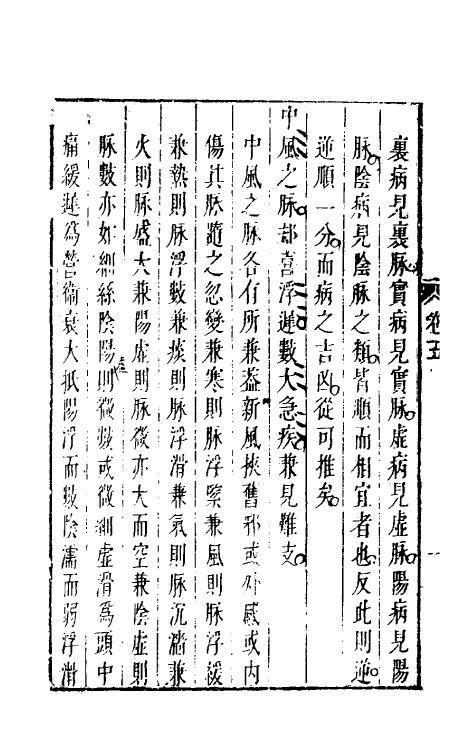 裏病見裏脉實病見實脉虛病見虛脉陽病見陽
脉陰病見陰脉之類皆順而相宜者也反此則逆
逆順一分而病之吉凶從可推矣
中風之脉却喜浮遲數大急疾兼見難支
中風之脉各有所兼蓋新風挾舊邪或外感或內
傷其脉隨之忽變兼寒則脉浮緊兼風則脉浮緩
兼熱則脉浮數兼痰則脉浮滑兼氣則脉沉濇兼
火則脉盛大兼陽虛則脉微亦大而空兼陰虛則
脉數亦如細絲陰陽則微數或微細虛滑為頭中
虛
痛緩遲為營衛衰大抵陽浮而數陰濡而弱浮滑
卷五